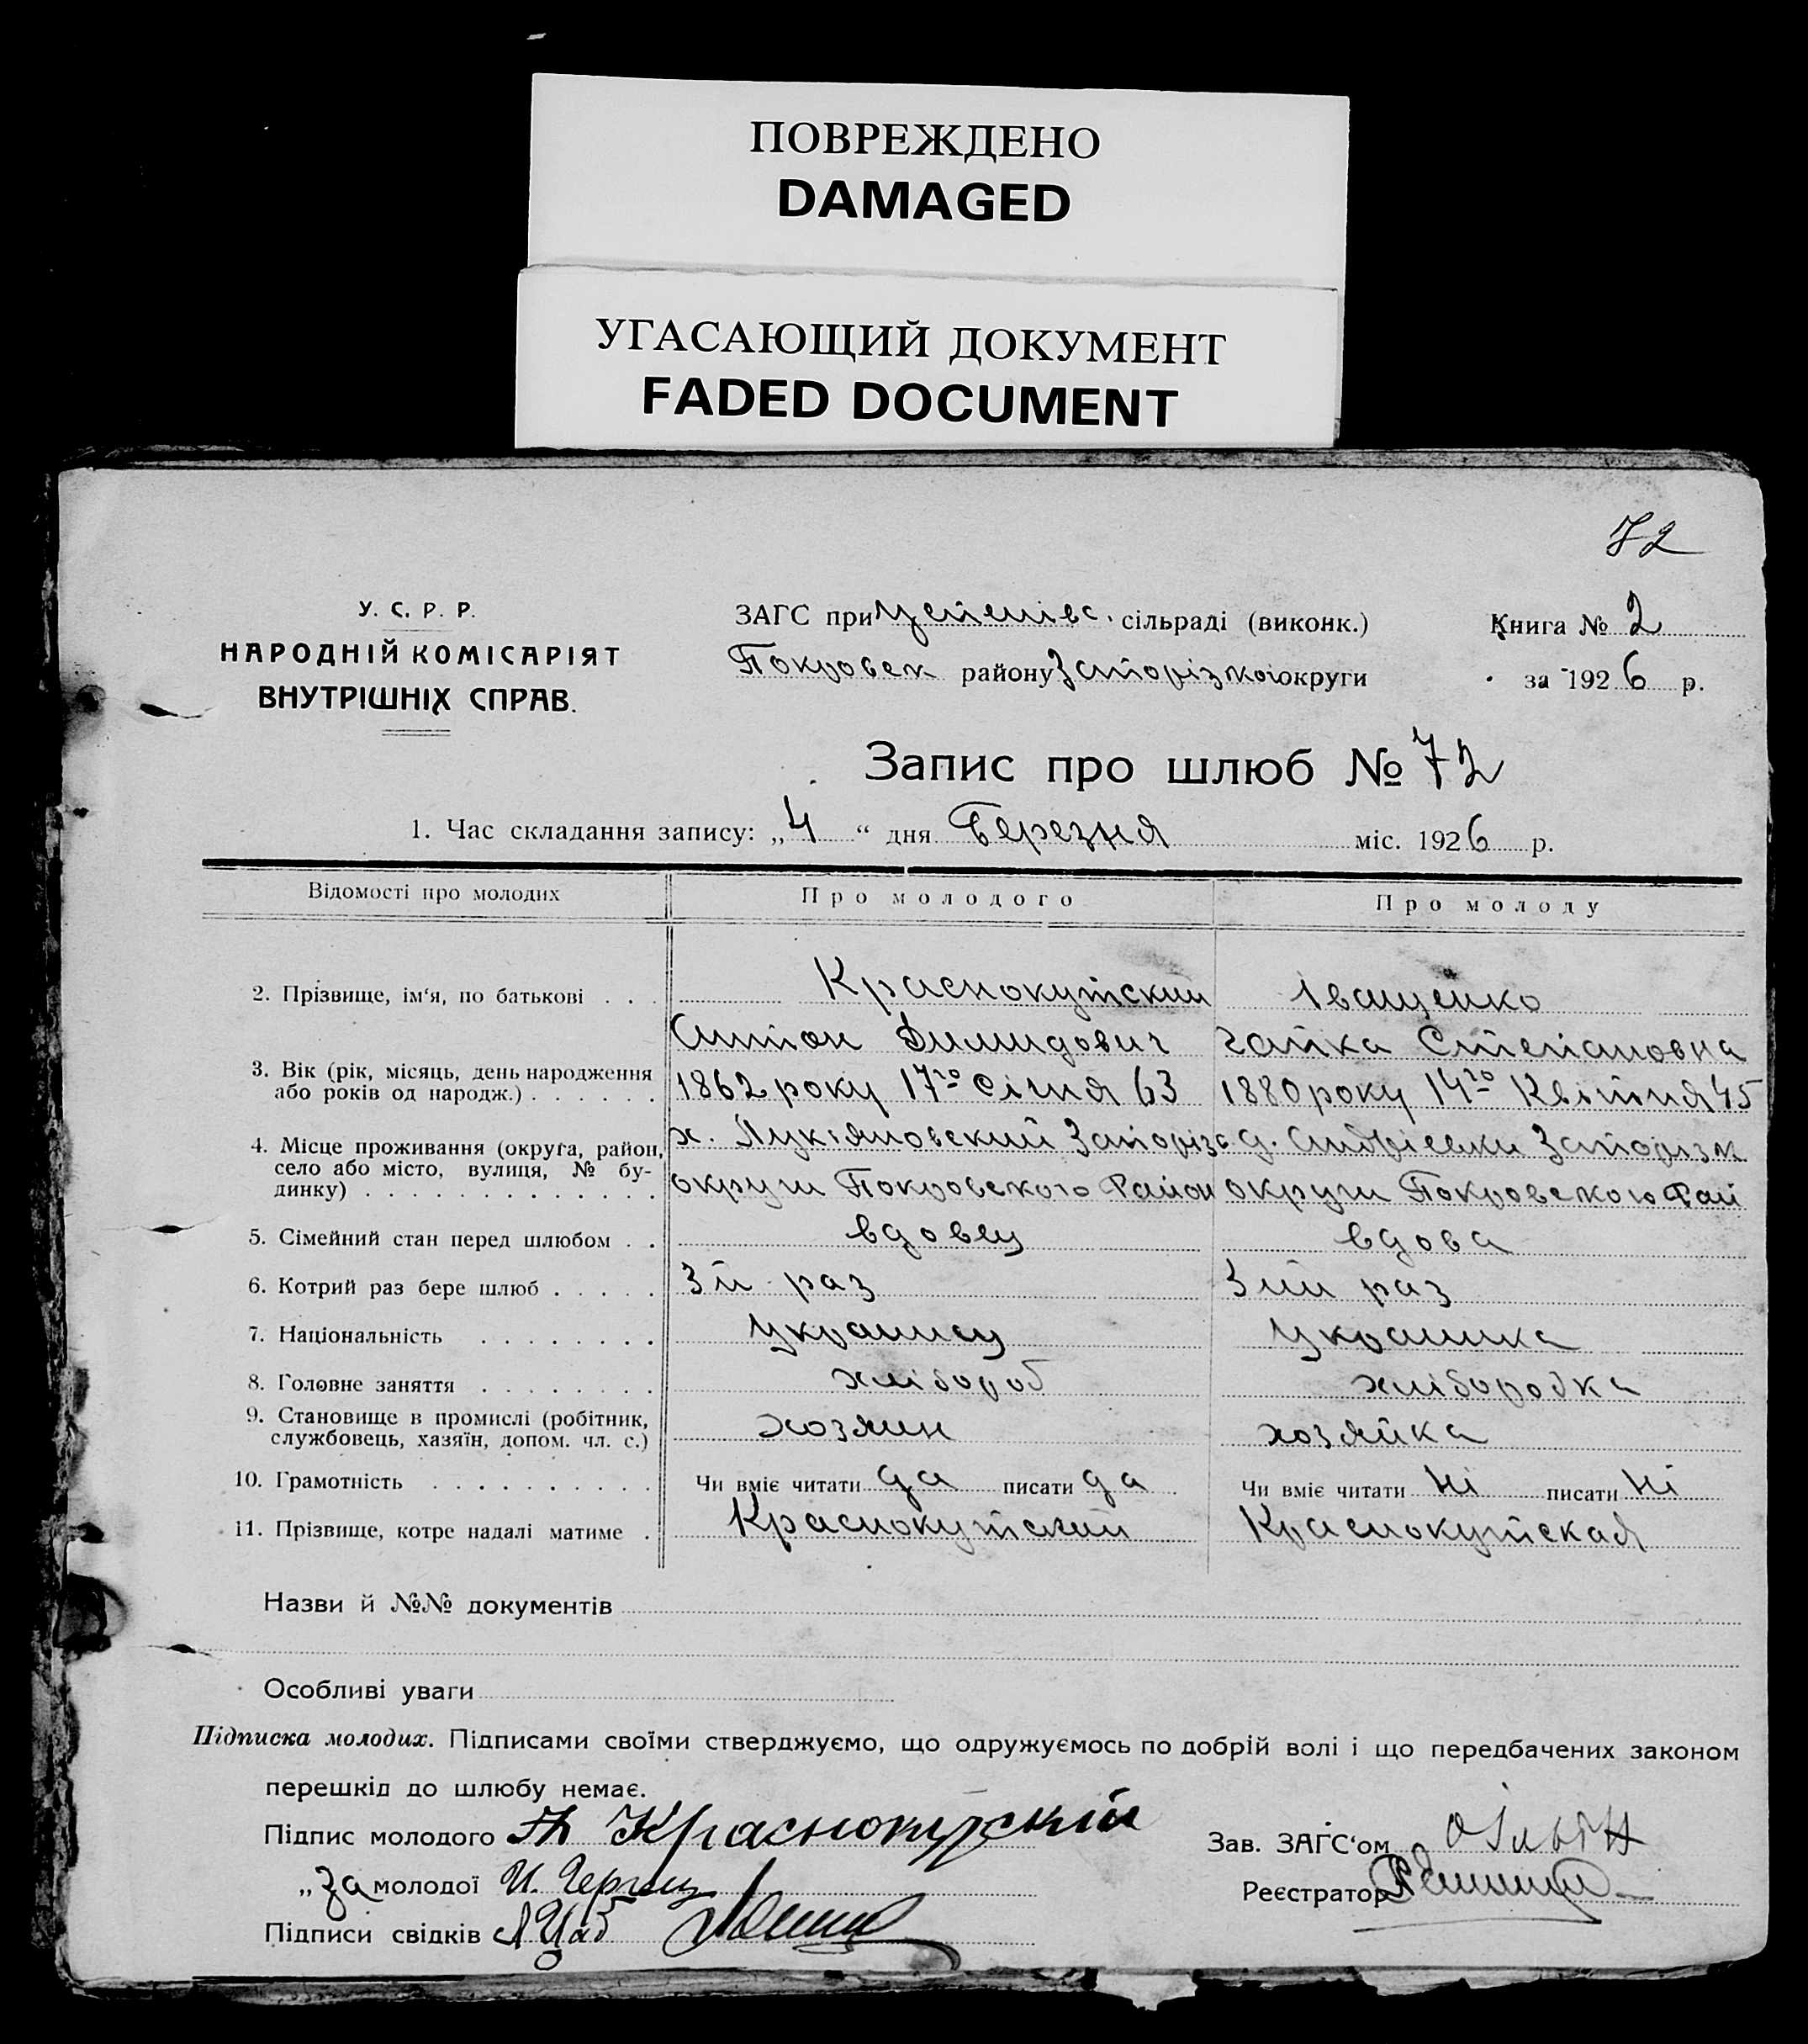 ПОВРЕЖДЕНО
DAMAGED
УГАСАЮЩИЙ ДОКУМЕНТ
FADED DOCUMENT
72
У. С. Р. Р.
НАРОДНІЙ КОМІСАРІЯТ
ВНУТРІШНІХ СПРАВ.
ЗАГС при сільраді (виконк.)
Покровск району Запорізкої округи
Книга № 2
за 1926 р.
Запис про шлюб № 72
1. Час складання запису: „4“ дня Березня міс. 1926 р.
Відомості про молодих
Про молодого
Про молоду
2. Прізвище, ім'я, по батькові . . .
Краснокутский
Антон Димидович
Іващенко
Степановна
3. Вік (рік, місяць, день народження
або років од народж.) . . . . . .
1862 року 17го Січня 63
1880 року 14го Квітня 45
4. Місце проживання (округа, район,
село або місто, вулиця, № бу-
динку) . . . . . . . . . . . . .
х. Лукяновский Запоріз
округи Покровского Район
д. Андріевки Запорізк
округи Покровского Рай
5. Сімейний стан перед шлюбом . .
вдовец
вдова
6. Котрий раз бере шлюб . . . . .
3й раз
3ий раз
7. Національність . . . . . . . .
Украинец
Украинка
8. Головне заняття . . . . . . . .
хлібороб
хліборобка
9. Становище в промислі (робітник,
службовець, хазяїн, допом. чл. с.)
хозяин
хозяйка
10. Грамотність . . . . . . . . . .
Чи вміє читати да писати да
Чи вміє читати ні писати ні
11. Прізвище, котре надалі матиме .
Краснокутский
Краснокутская
Назви й №№ документів
Особливі уваги
Підписка молодих. Підписами своїми стверджуємо, що одружуємось по добрій волі і що передбачених законом
перешкід до шлюбу немає.
Підпис молодого Краснокутскій
„ за молодої
Підписи свідків
Зав. ЗАГС'ом
Реєстратор